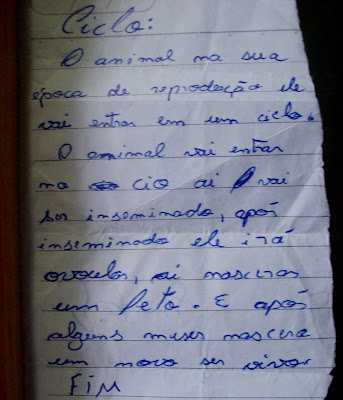 Ciclo:
O animal na sua
época de reprodução ele
vai entrar em um ciclo.
O animal vai entrar
no cio ai vai
ser inseminado, após
inseminado ele irá
ovoular, ai nascerar
um feto. E após
alguns meses nascera
um novo ser vivo.
FIM